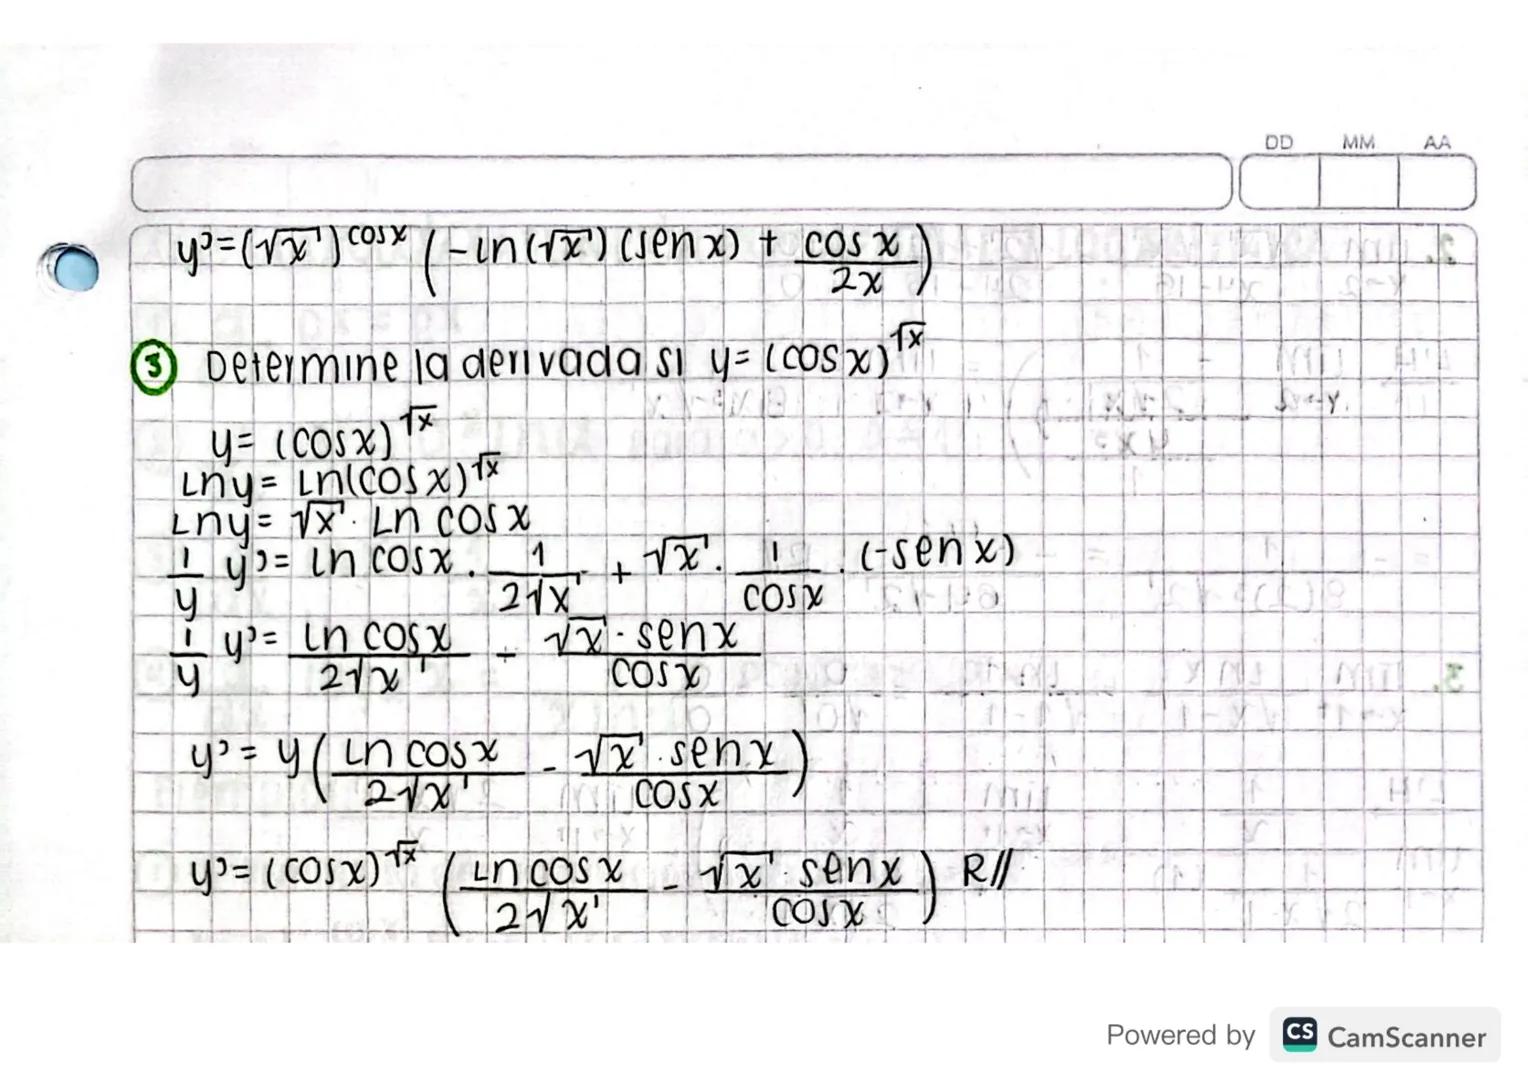 DD MM AA
y' = (√x)^cosx (-Ln(√x)(sen x) + cos x / 2x)
③ Determine la derivada si y = (cos x)^√x
y = (cos x)^√x
Ln y = Ln(cos x)^√x
Ln y = √x · Ln cos x
1/y y' = Ln cos x · 1/2√x + √x · 1/cos x · (-sen x)
1/y y' = Ln cos x / 2√x - √x · sen x / cos x
y' = y (Ln cos x / 2√x - √x · sen x / cos x)
y' = (cos x)^√x (Ln cos x / 2√x - √x · sen x / cos x) R//
Powered by CS CamScanner